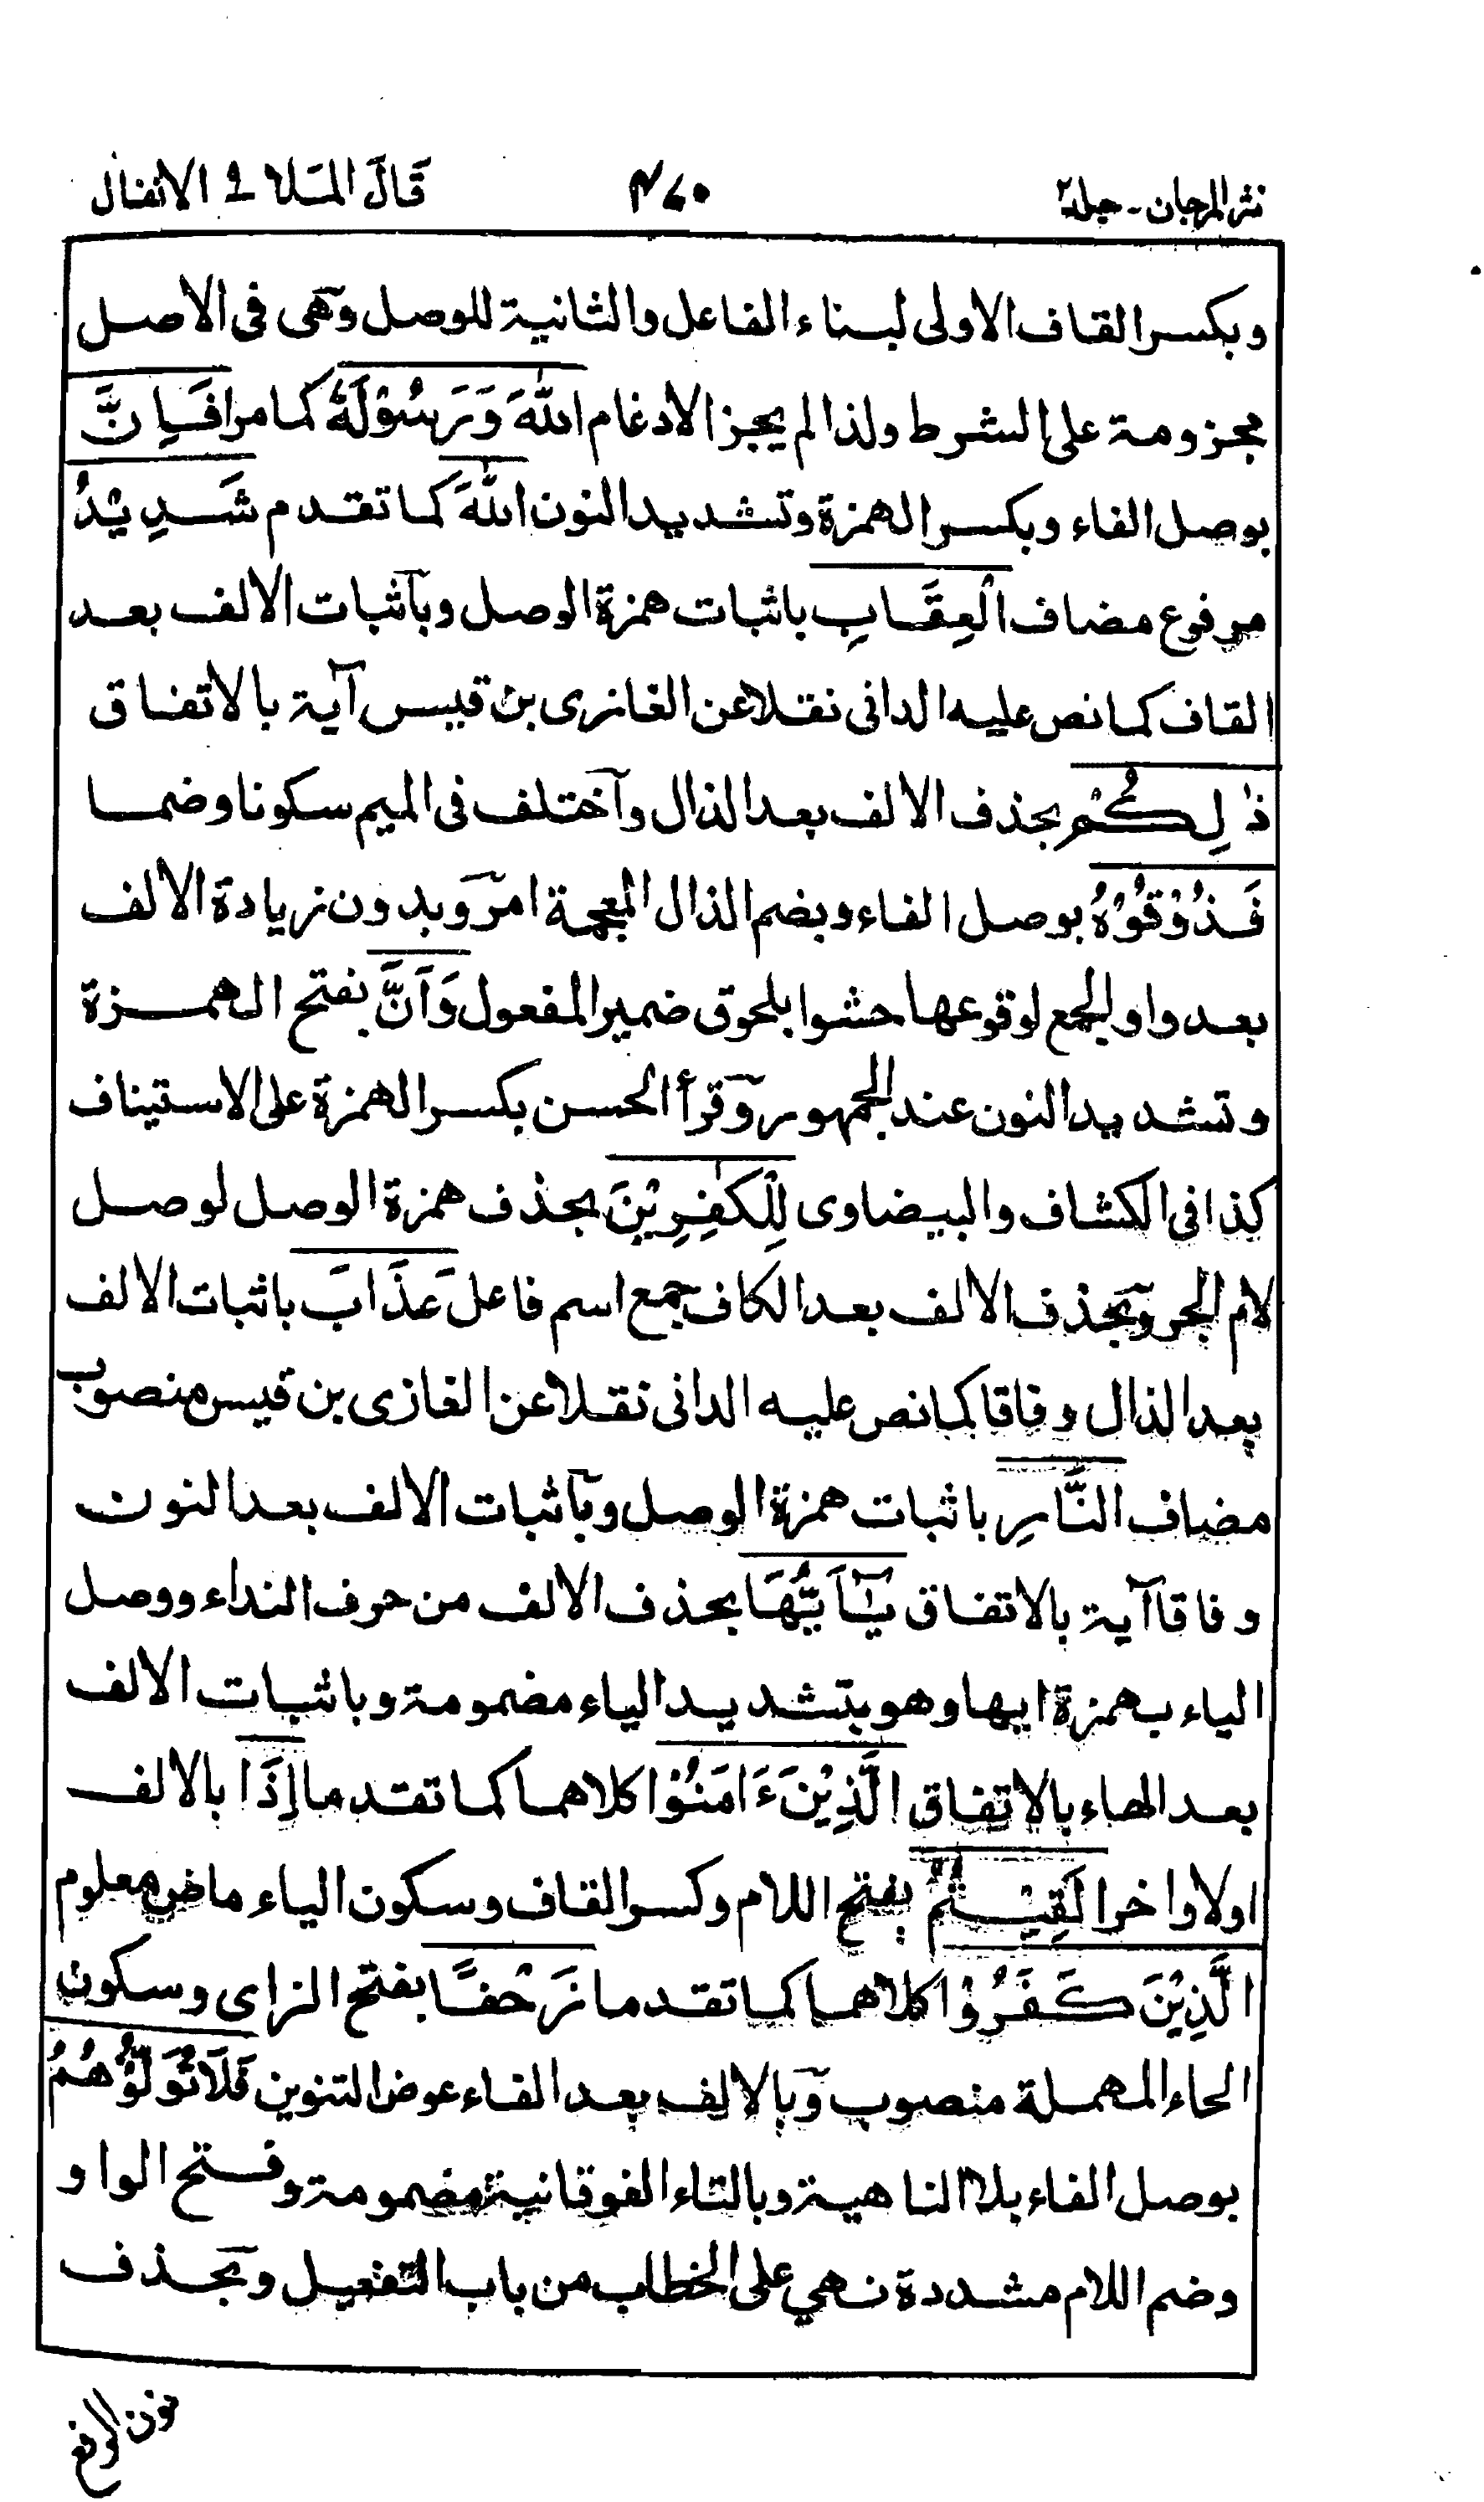 نثر المرجان - جلد٢
٤٧٠
قَالَ المَلَا ٩ الانفال
وبكسر القاف الاولى لبناء الفاعل والثانية للوصل وهى فى الاصل
مجزومة على الشرط ولذا لم يجز الادغام اللّٰهَ وَرَسُوْلَهٗ كما مر افَاِنَّ
بوصل الفاء وبكسر الهمزة وتشديد النون اللّٰهَ كما تقدم شَدِيْدُ
مرفوع مضاف الْعِقَابِ باثبات همزة الوصل وبآثبات الالف بعد
القاف كما نص عليه الدانى نقلا عن الغازى بن قيس آية بالاتفاق
ذٰلِكُمْ بحذف الالف بعد الذال وآختلف فى الميم سكونا وضما
فَذُوْقُوْهُ بوصل الفاء وبضم الذال المعجمة امر وَبدون زيادة الالف
بعد واو الجمع لوقوعها حشوا بلحوق ضمير المفعول وَاَنَّ بفتح الهمزة
وتشديد النون عند الجمهور وَقرأ الحسن بكسر الهمزة على الاستيناف
كذا فى الكشاف والبيضاوى لِلْكٰفِرِيْنَ بحذف همزة الوصل لوصل
لام الجر وَبحذف الالف بعد الكاف جمع اسم فاعل عَذَابَ باثبات الالف
بعد الذال وفاقا كما نص عليه الدانى نقلا عن الغازى بن قيس منصوب
مضاف النَّارِ باثبات همزة الوصل وبآثبات الالف بعد النون
وفاقا آية بالاتفاق يٰٓاَيُّهَا بحذف الالف من حرف النداء ووصل
الياء بهمزة ايها وهو بتشديد الياء مضمومة وباثبات الالف
بعد الهاء بالاتفاق الَّذِيْنَ ءَامَنُوْا كلاهما كما تقدما اِذَا بالالف
اولا واخرا لَقِيْتُمْ بفتح اللام وكسر القاف وسكون الياء ماض معلوم
الَّذِيْنَ كَفَرُوْا كلاهما كما تقدما زَحْفًا بفتح الزاى وسكون
الحاء المهملة منصوب وَبالالف بعد الفاء عوض التنوين فَلَا تُوَلُّوْهُمُ
بوصل الفاء بلا الناهية وبالتاء الفوقانية مضمومة وفتح الواو
وضم اللام مشددة نهي على الخطاب من باب التفعيل وبَحذف
نون